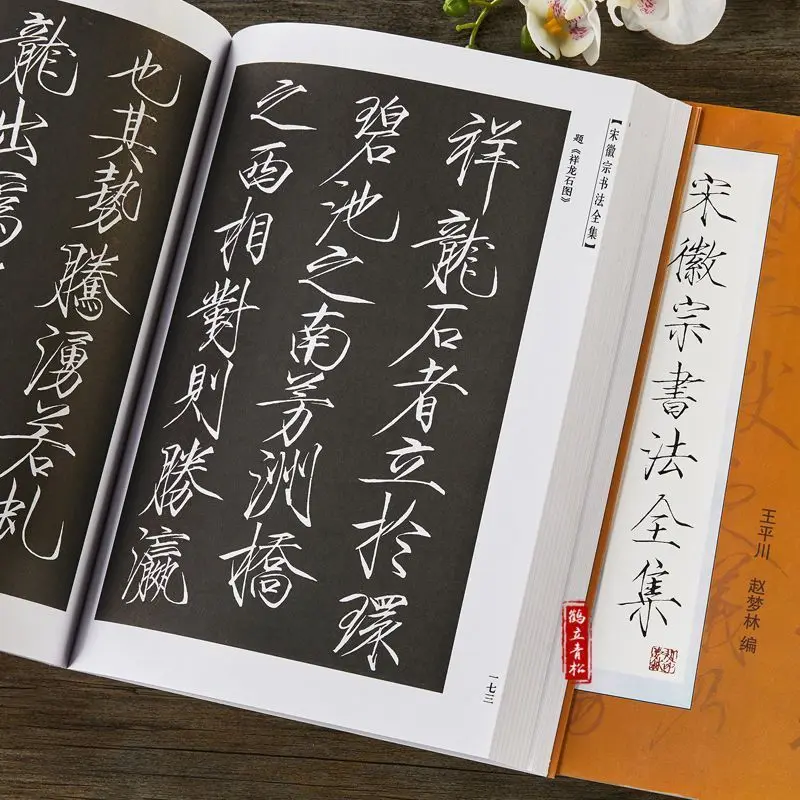 宋徽宗書法全集
王平川 赵梦林 编
【宋徽宗书法全集】
题《祥龙石图》
祥龍石者立扵環
碧池之南芳洲橋
之西相對則勝瀛
一七三
也其勢騰湧若虬
龍出為
鶴立青松